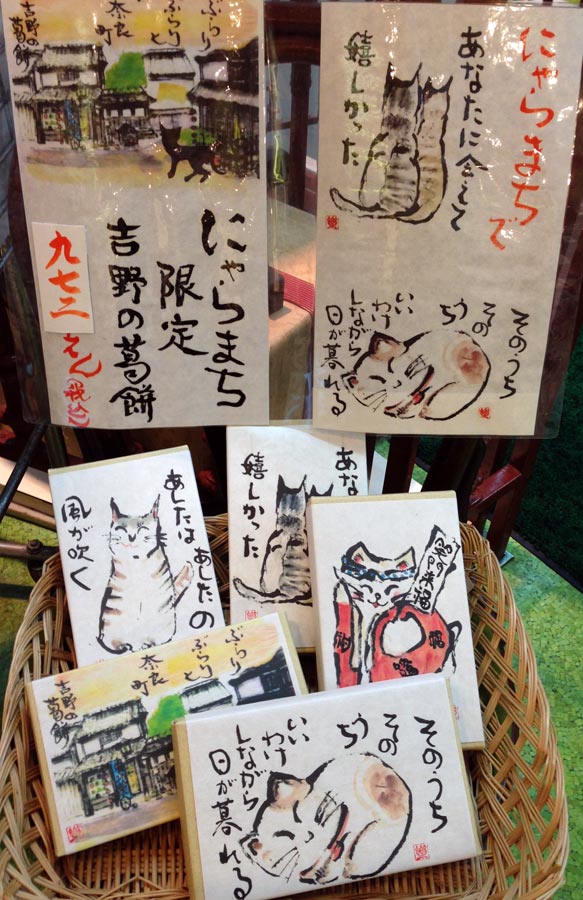 ぶらり
ぶらりと
奈良
町
吉野の
葛餅
にゃらまち
限定
吉野の葛餅
九七二
えん
(税込)
にゃらまちで
あなたに会えて
嬉しかった
そのうち
そのうち
いいわけ
しながら
日が暮れる
あしたは あしたの
風が吹く
あな
嬉しかった
笑門来福
福
ぶらり
ぶらりと
奈良
町
吉野の
葛餅
そのうち
そのうち
いいわけ
しながら
日が暮れる